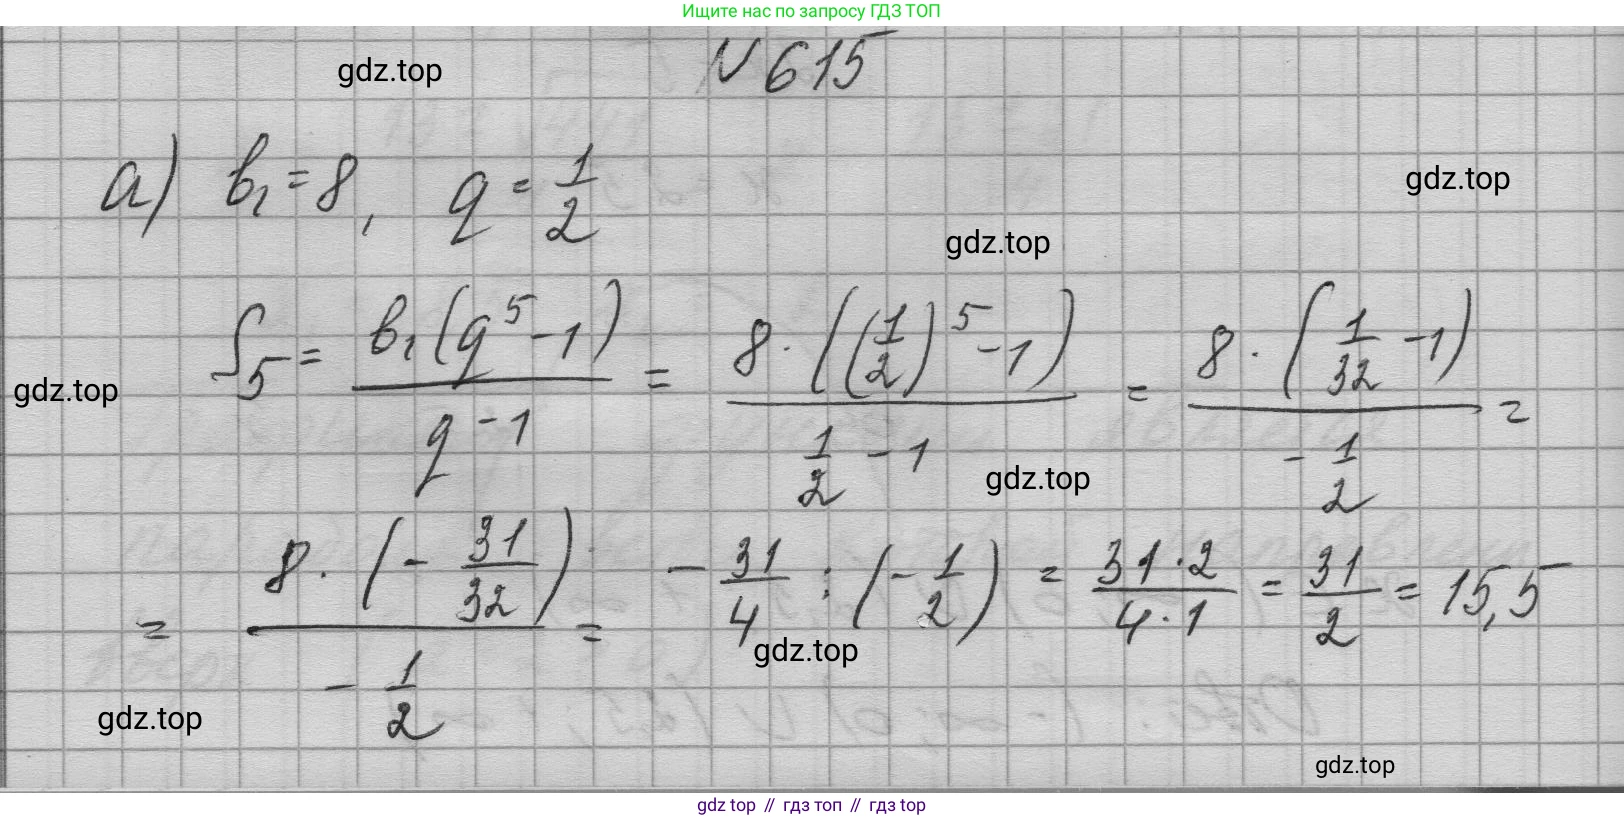 Ищите нас по запросу ГДЗ ТОП
N 615
gdz.top
а) b₁ = 8, q = 1/2
gdz.top
gdz.top
S₅ = b₁(q⁵ - 1) / (q - 1) = 8 · ((1/2)⁵ - 1) / (1/2 - 1) = 8 · (1/32 - 1) / (- 1/2) =
gdz.top
gdz.top
= 8 · (- 31/32) / (- 1/2) = - 31/4 : (- 1/2) = 31 · 2 / (4 · 1) = 31/2 = 15,5
gdz.top
gdz.top
gdz.top
gdz top // гдз топ // гдз top